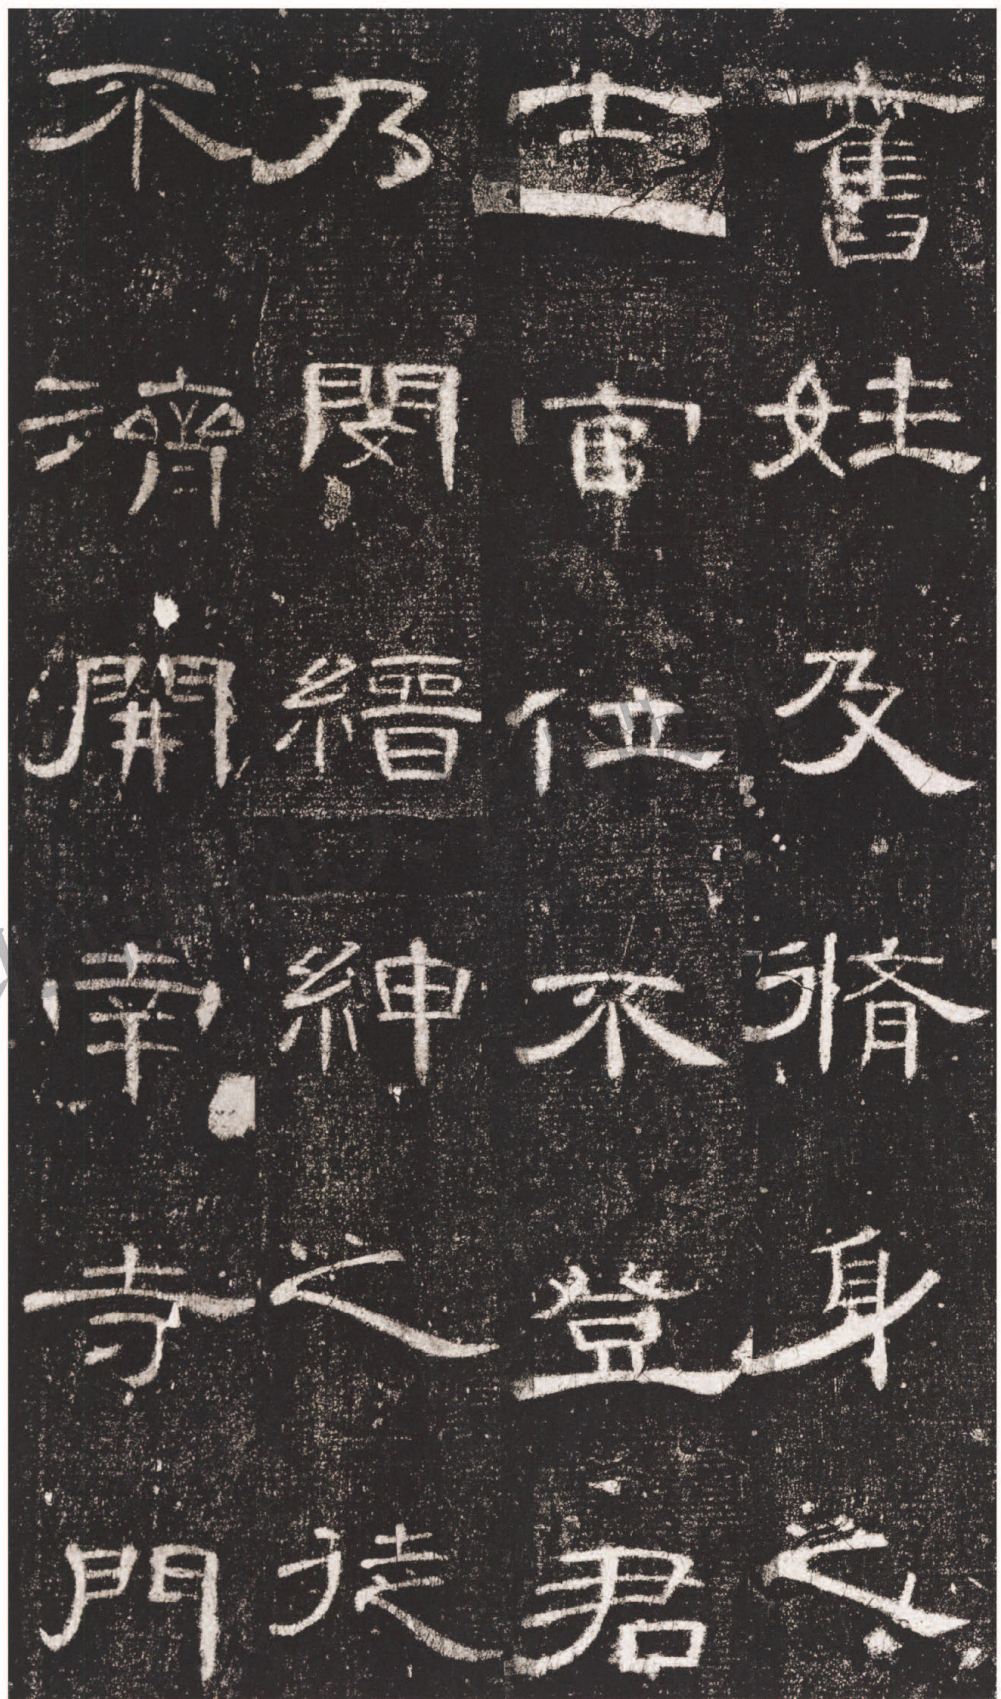 舊姓及脩身之
士官位不登君
乃閔縉紳之徒
不濟開南寺門